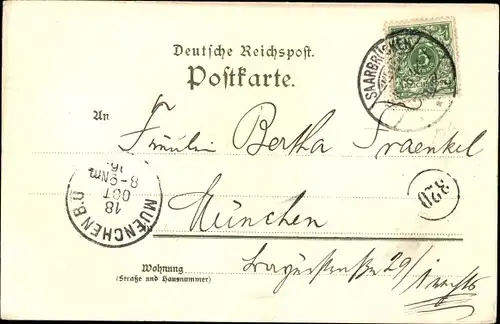 Deutsche Reichspost.
Postkarte.
SAARBRÜCKEN
5
An
Fräulein Bertha Fraenkel
München
320
MUENCHEN B.D.
18
OCT
8-9 Nm
29/I rechts
Wohnung
(Straße und Hausnummer)